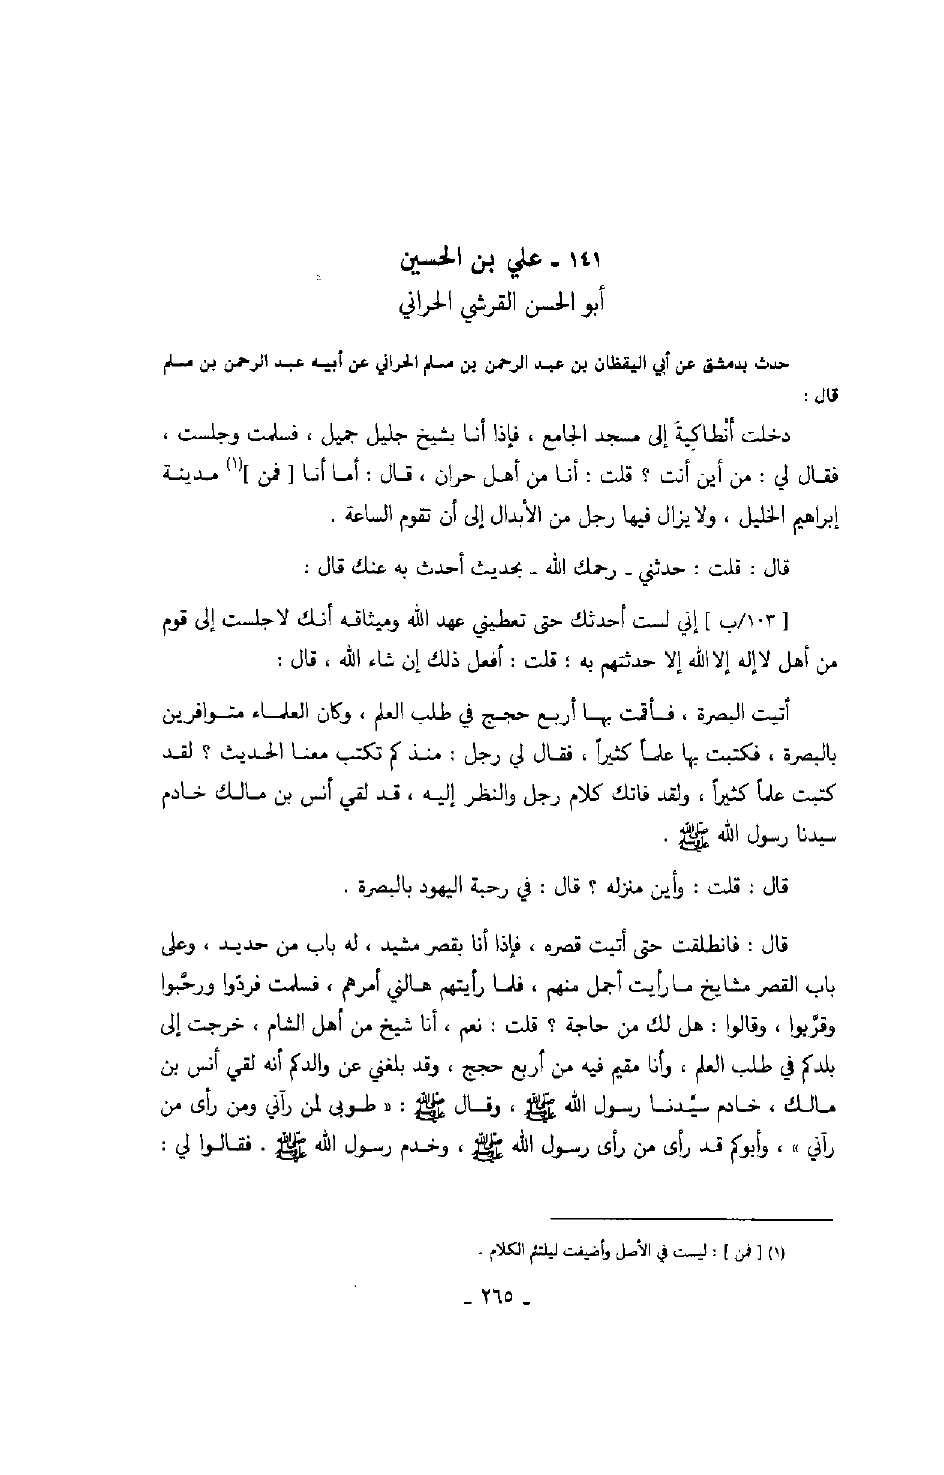 ١٤١ ـ علي بن الحسين
أبو الحسن القرشي الحراني
حدث بدمشق عن أبي اليقظان بن عبد الرحمن بن مسلم الحراني عن أبيه عبد الرحمن بن مسلم
قال :
دخلت أنطاكية إلى مسجد الجامع ، فإذا أنا بشيخ جليل جميل ، فسلمت وجلست ،
فقال لي : من أين أنت ؟ قلت : أنا من أهل حران ، قال : أما أنا [ فمن ](١) مدينة
إبراهيم الخليل ، ولا يزال فيها رجل من الأبدال إلى أن تقوم الساعة .
قال : قلت : حدثني ـ رحمك الله ـ بحديث أحدث به عنك قال :
[ ١٠٣/ب ] إني لست أحدثك حتى تعطيني عهد الله وميثاقه أنك لا جلست إلى قوم
من أهل لا إله إلا الله إلا حدثتهم به ؛ قلت : أفعل ذلك إن شاء الله ، قال :
أتيت البصرة ، فأقمت بها أربع حجج في طلب العلم ، وكان العلماء متوافرين
بالبصرة ، فكتبت بها علماً كثيراً ، فقال لي رجل : منذ كم تكتب معنا الحديث ؟ لقد
كتبت علماً كثيراً ، ولقد فاتك كلام رجل والنظر إليه ، قد لقي أنس بن مالك خادم
سيدنا رسول الله ﷺ .
قال : قلت : وأين منزله ؟ قال : في رحبة اليهود بالبصرة .
قال : فانطلقت حتى أتيت قصره ، فإذا أنا بقصر مشيد ، له باب من حديد ، وعلى
باب القصر مشايخ ما رأيت أجمل منهم ، فلما رأيتهم هالني أمرهم ، فسلمت فردّوا ورحّبوا
وقرّبوا ، وقالوا : هل لك من حاجة ؟ قلت : نعم ، أنا شيخ من أهل الشام ، خرجت إلى
بلدكم في طلب العلم ، وأنا مقيم فيه من أربع حجج ، وقد بلغني عن والدكم أنه لقي أنس بن
مالك ، خادم سيّدنا رسول الله ﷺ ، وقال ﷺ : « طوبى لمن رآني ومن رأى من
رآني » ، وأبوكم قد رأى من رأى رسول الله ﷺ ، وخدم رسول الله ﷺ . فقالوا لي :
(١) [ فمن ] : ليست في الأصل وأضيفت ليلتئم الكلام .
ـ ٢٦٥ ـ